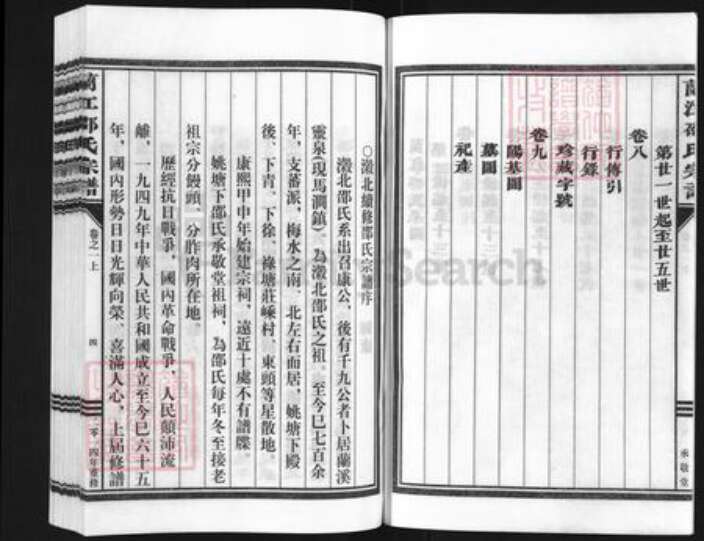 蘭江邵氏宗譜
第廿一世起至廿五世
卷八
行傳引
行錄
珍藏字號
卷九
陽基圖
墓圖
祀產
承敬堂
○澂北續修邵氏宗譜序
澂北邵氏系出召康公，後有千九公者卜居蘭溪
靈泉(現馬澗鎮)，為澂北邵氏之祖。至今已七百余
年，支蕃派，梅水之南、北左右而居，姚塘下殿
後、下青、下徐、祿塘莊嵊村、東頭等星散地。
康熙甲申年始建宗祠，遠近十處不有譜牒。
姚塘下邵氏承敬堂祖祠，為邵氏每年冬至接老
祖宗分饅頭、分胙肉所在地。
歷經抗日戰爭，國內革命戰爭，人民顛沛流
離，一九四九年中華人民共和國成立至今已六十五
年，國內形勢日日光輝向榮、喜滿人心，上屆修譜
蘭江邵氏宗譜
卷之一上
四
二零一四年重修